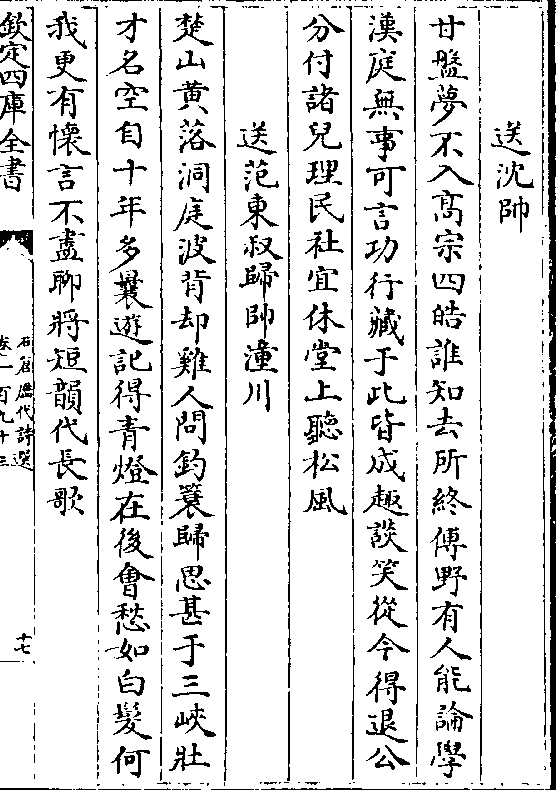 送沈帥
甘盤夢不入髙宗四皓誰知去所終傅野有人能論學
漢庭無事可言功行藏于此皆成趣談笑從今得退公
分付諸兒理民社宜休堂上聽松風
送范東叔歸帥潼川
楚山黃落洞庭波背却雞人問釣簑歸思甚于三峽壯
才名空自十年多曩遊記得青燈在後會愁如白髮何
我更有懷言不盡聊將短韻代長歌
欽定四庫全書
石倉歷代詩選
卷一百九十三
十七